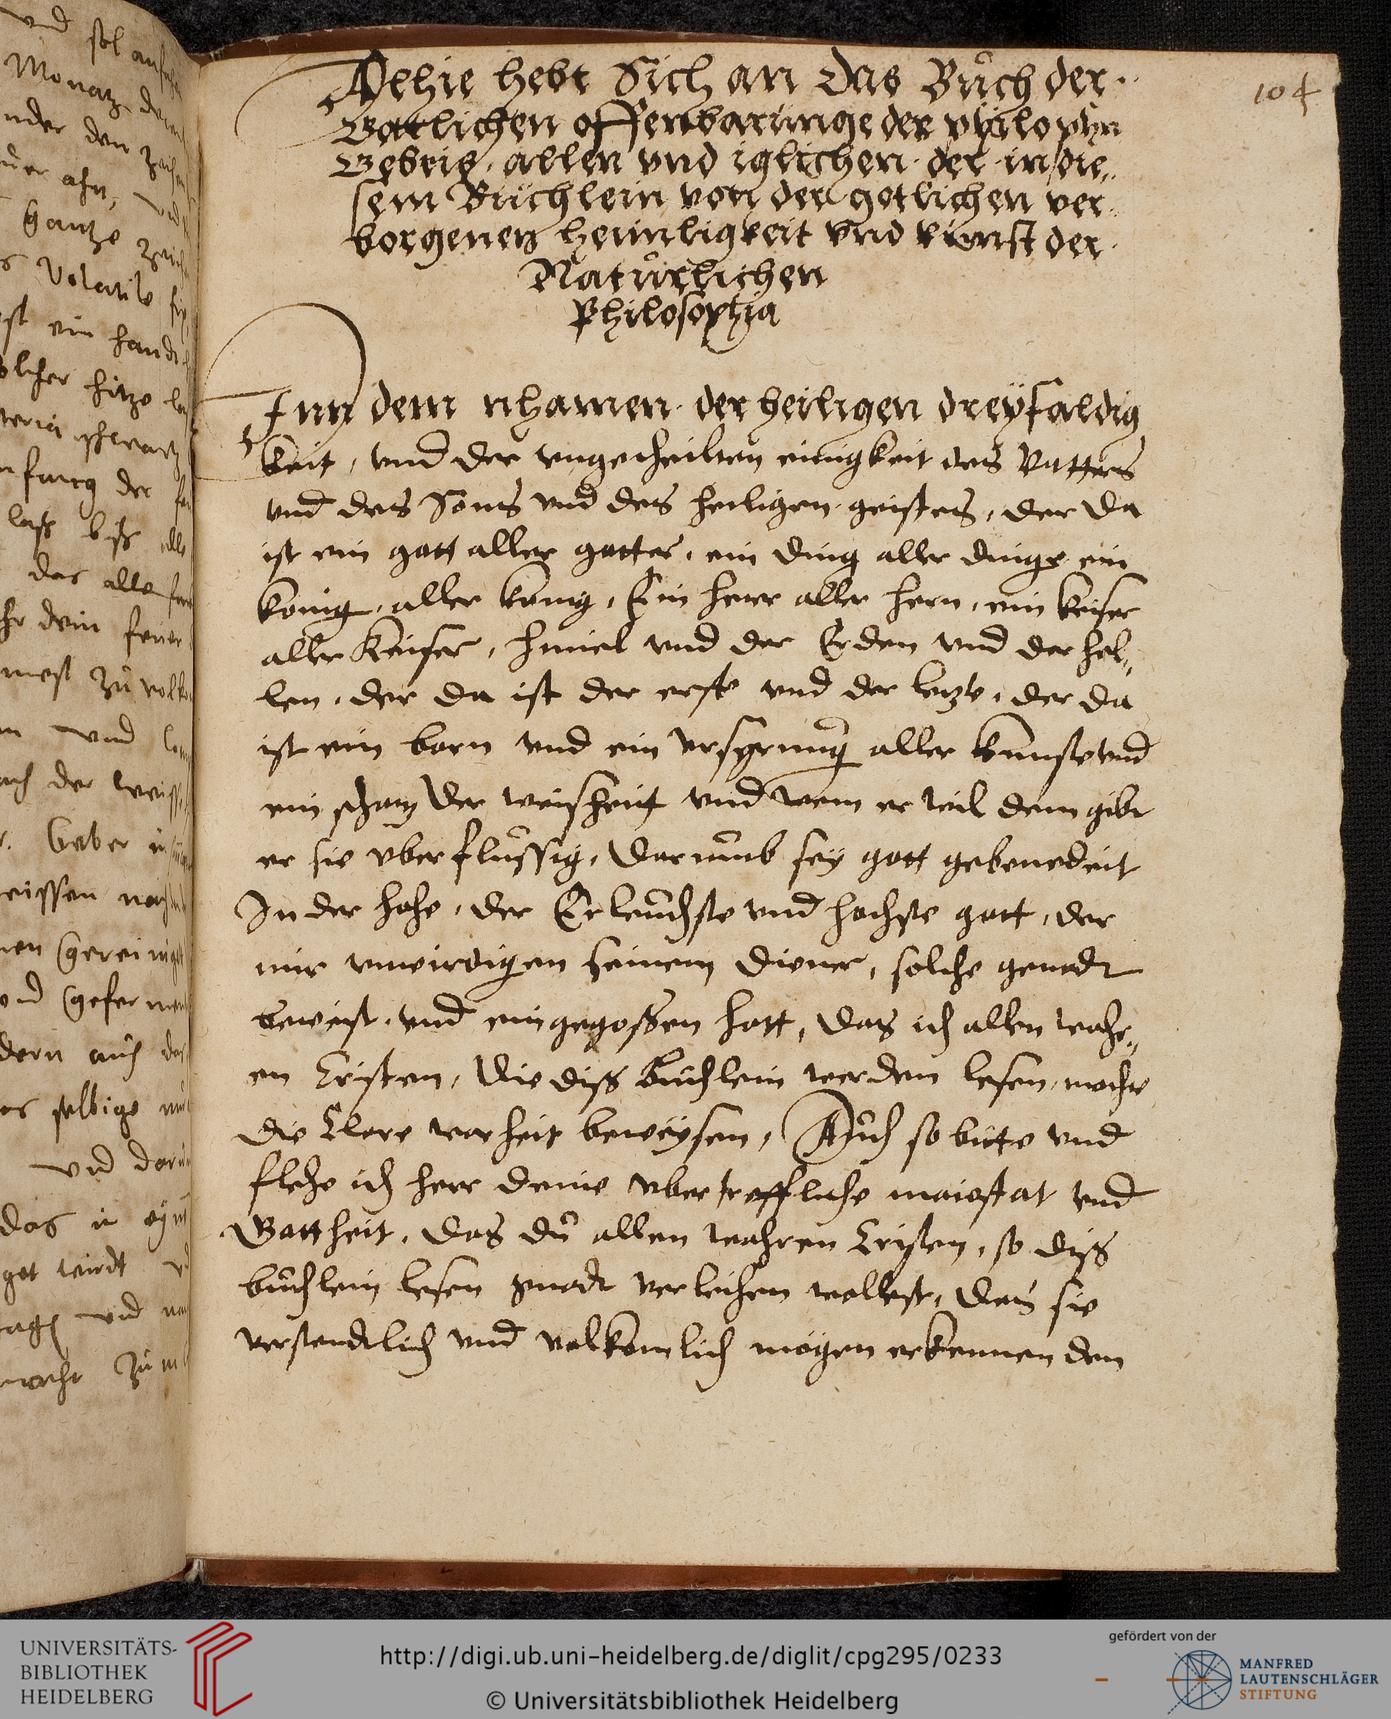 104
Alhie hebt Sich an das Buch der
Gotlichen offenbarunge der philosophyn
Gebrig allen vnd iglichen der in die„
sem Büchlein von der gotlichen ver„
borgenen heimligkeit vnd kunst der
Natürlichen
Philosophia
Inn dem nhamen der heiligen dreyfaldig
keit, vnd der vngetheilten einigkeit des Vatters
vnd des Sons vnd des heiligen geistes, der da
ist ein gott aller gotter, ein ding aller dinge ein
konig, aller konig, Ein herr aller hern, ein keiser
aller Keiser, himel vnd der Erden vnd der hel„
len, der da ist der erste vnd der letzte, der da
ist ein born vnd ein vrsprung aller kunste vnd
ein schatz der weisheit vnd wem er wil dem gibt
er sie vberflussig, Darumb sey gott gebenedeit
In der hohe, der Erleuchste vnd hochste gott, der
mir vnwirdigen seinem diener, solche genadt
beweist, vnd eingegossen hatt, das ich allen wahr„
en Cristen, die diss buchlein werden lesen, mochte
die Clare warheit beweysen, Auch so bitte vnd
flehe ich herr deine vbertreffliche maiestat vnd
Gottheit, das du allen wahren Cristen, so diss
buchlein lesen gnadt verleihen wollest, das sie
verstendtlich vnd volkomlich mogen erkennen den
vnd sol
Monatz
vnder den
ahn,
Gantze
Volatile
ist ein
solcher hitze
anfang der
lass biss
das alle
dein feuer
zu
vnd
nach der
Geber in
weissen
gereiniget
vnd
sondern auch das
das selbige
vnd
das in
wirdt
vnd
UNIVERSITÄTS-
BIBLIOTHEK
HEIDELBERG
http://digi.ub.uni-heidelberg.de/diglit/cpg295/0233
© Universitätsbibliothek Heidelberg
gefördert von der
MANFRED
LAUTENSCHLÄGER
STIFTUNG